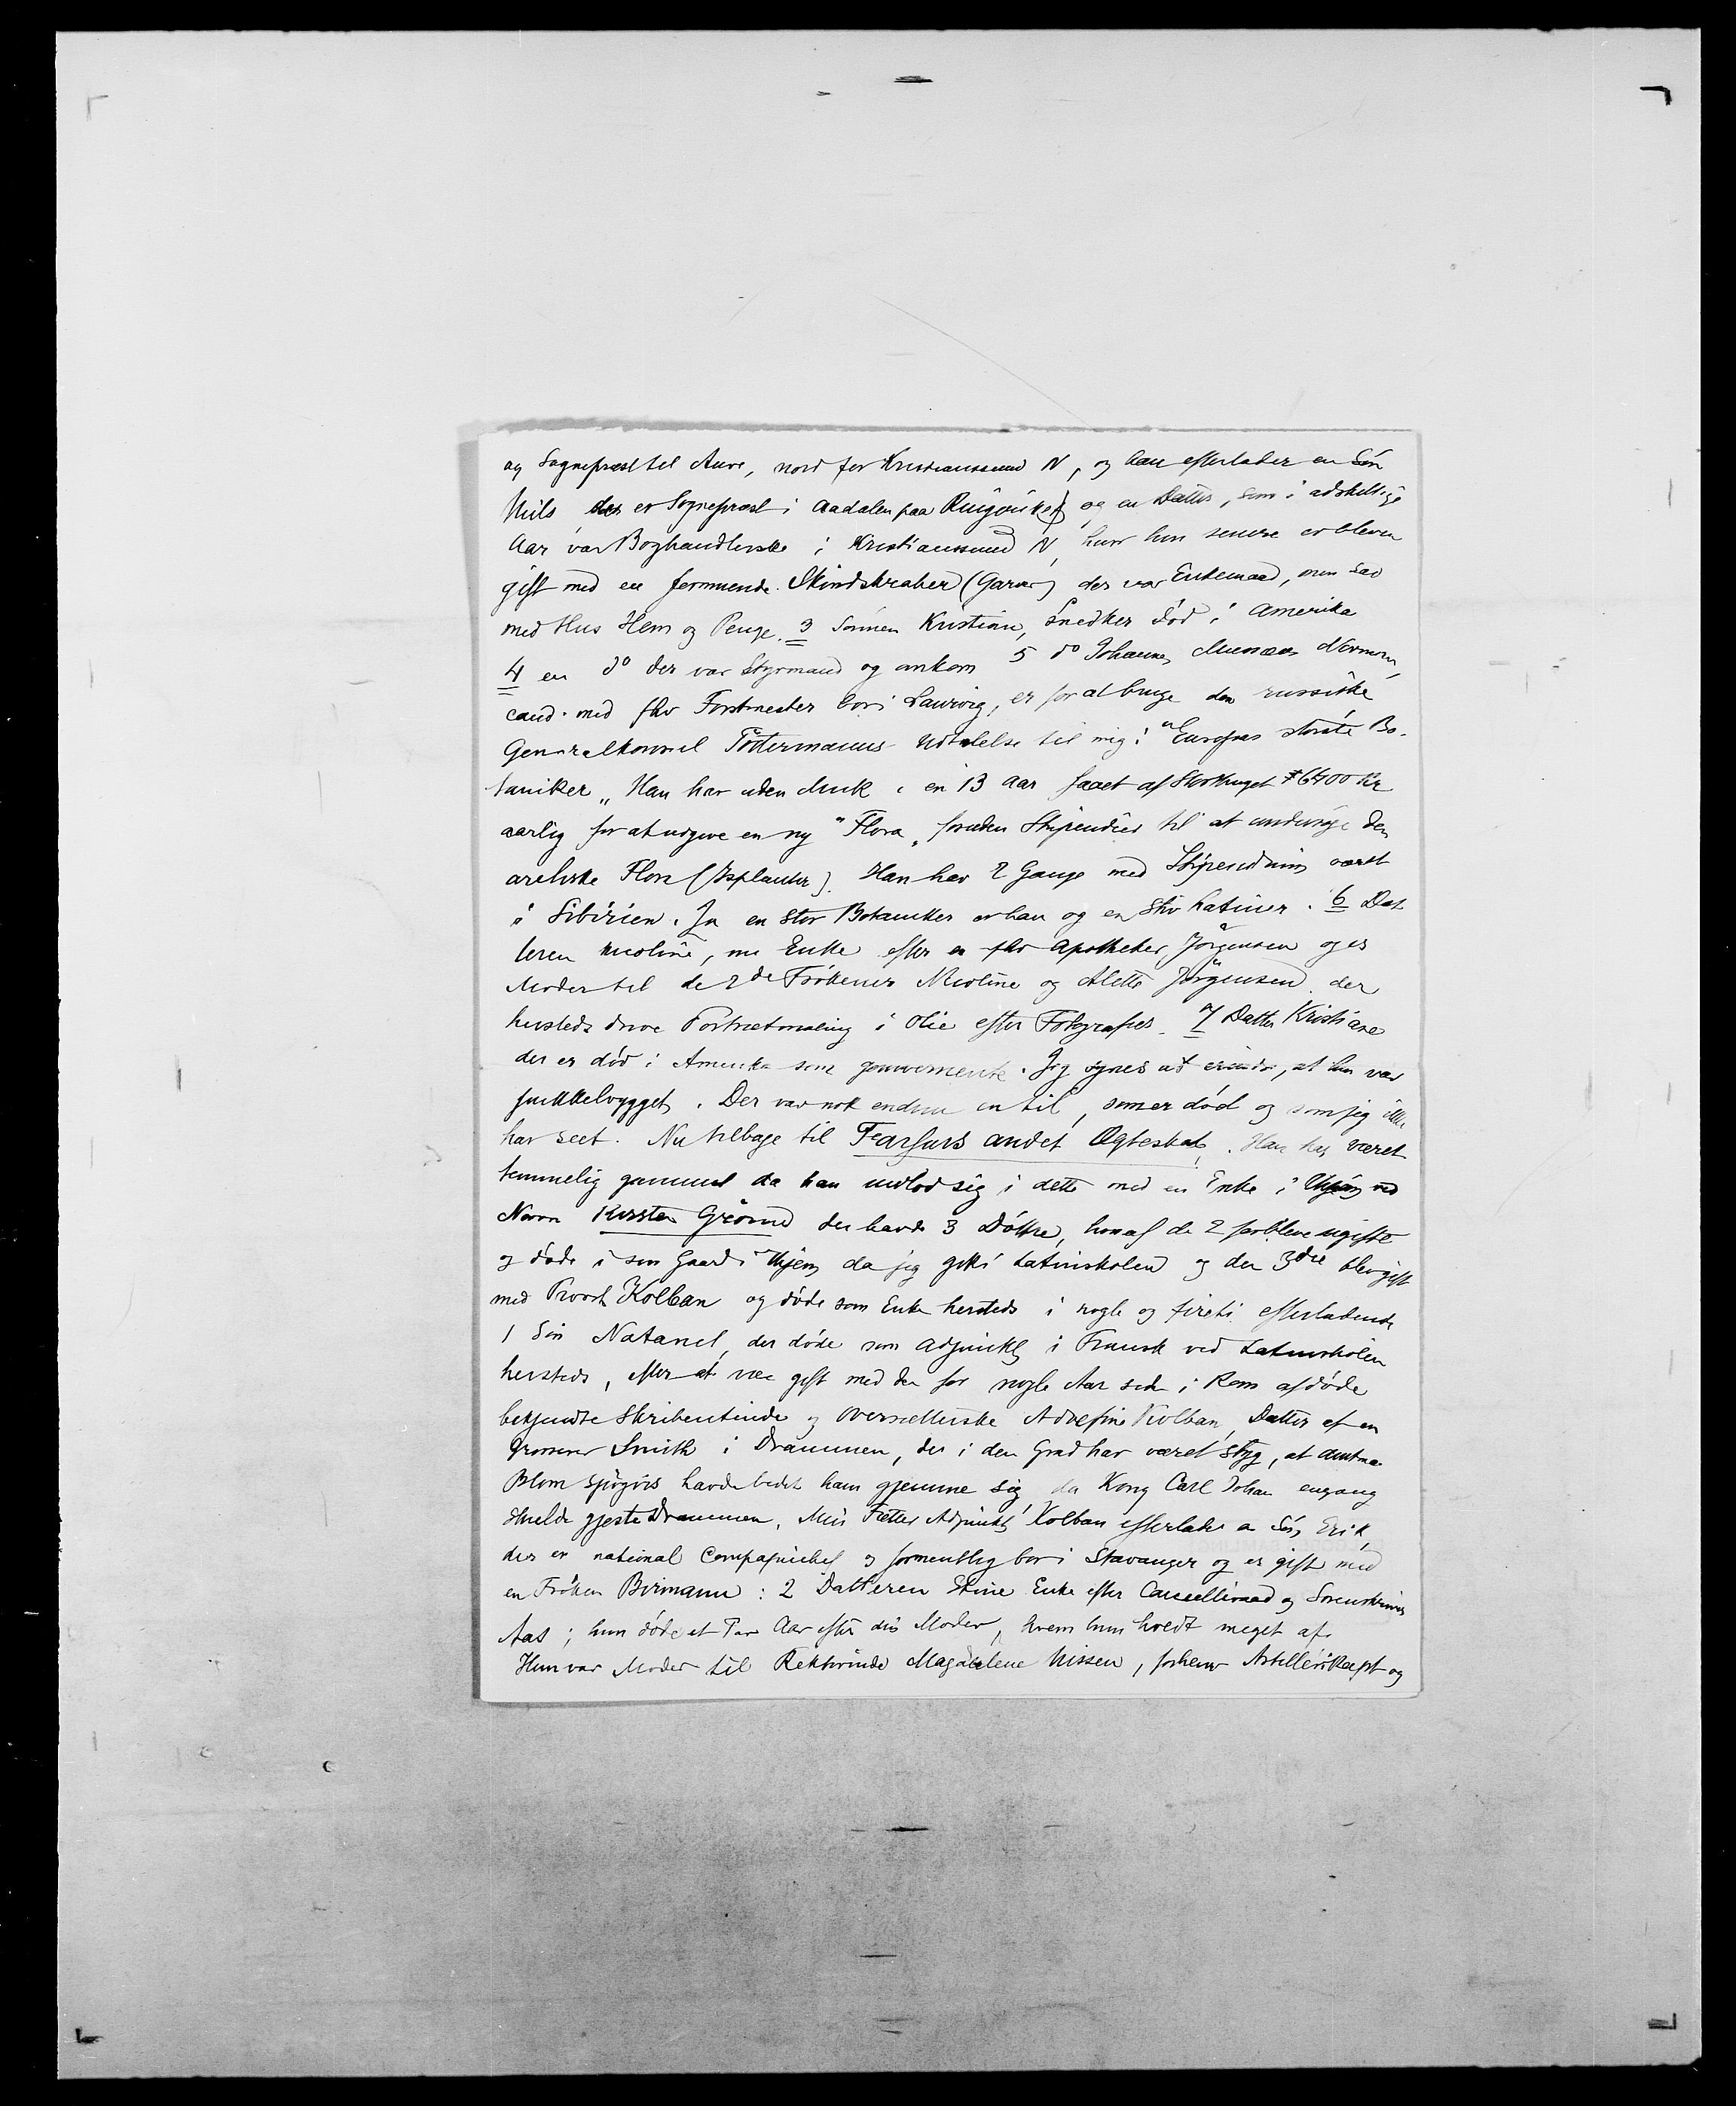 og Sogneprest til Aure, nord for Kristianssund N, og han efterlader en Sön
Nils der er Sogneprest i Aadalen paa Ringerike og en Datter, som i adskillige
Aar var Boghandlerske i Kristianssund N, hvor hun senere er bleven
gift med en formuende Skindskraber (Garver) der var Enkemand, men sad
med Hus Hem og Penge. 3 Sönnen Kristian, Snedker död i Amerika
4 en do der var Styrmand og omkom 5 do Johannes Musæus Norman,
cand. med fhv Forstmester bor i Laurvig, er for at bruge den russiske
Generalkonsul Töttermanns Udtalelse til mig: "Europas störste Bo-
taniker" Han har uden Muk i en 13 Aar faaet af Storthinget 6400 Kr
aarlig for at udgive en ny "Flora" foruden Stipendier til at undersöge den
arktiske Flora (Isplanter). Han har 2 Gange med Stipendium været
i Sibirien. Ja en stor Botaniker er han og en stiv Latiner. 6 Dat
teren Nicoline, nu Enke efter en fhv Apotheker Jörgensen og er
Moder til de 2de Frökener Nicoline og Alette Jörgensen der
hersteds drive Portrætmaling i Olie efter Fotografier. 7 Datter Kristiane
der er död i Amerika som gouvernente. Jeg synes at erindre, at hun var
pukkelrygget. Der var nok endnu en til, som er död og som jeg ikke
har seet. Nu tilbage til Farfars andet Ægteskab. Han har været
temmelig gammel da han indlod sig i dette med en Enke i ved
Navn Kirsten Grönn der havde 3 Döttre, hvoraf de 2 forbleve ugifte
og döde i sin Gaard i da jeg gik i Latinskolen og den 3die blev gift
med Provst Kolban og döde som Enke hersteds i nogle og fireti efterladende
1 Sön Natanel, der döde som Adjunkt i Fransk ved Latinskolen
hersteds, efter at være gift med den for nogle Aar siden i Rom afdöde
bekjendte Skribentinde og Oversætterske Adolfine Kolban, Datter af en
Grosserer Smith i Drammen, der i den Grad har været styg, at Amtma.
Blom spögvis havde bedet ham gjemme sig da Kong Carl Johan engang
skulde gjeste Drammen. Min Fætter Adjunkt Kolban efterlader en Sön, Erik,
der er national Compagnichef og formentlig bor i Stavanger og er gift med
en Fröken Birmann: 2 Datteren Stine Enke efter Cancelliraad og Sorenskriver
Aas; hun döde et Par Aar efter din Moder, hvem hun holdt meget af.
Hun var Moder til Rektorinde Magdalene Nissen, forhenv Artillerikapt og